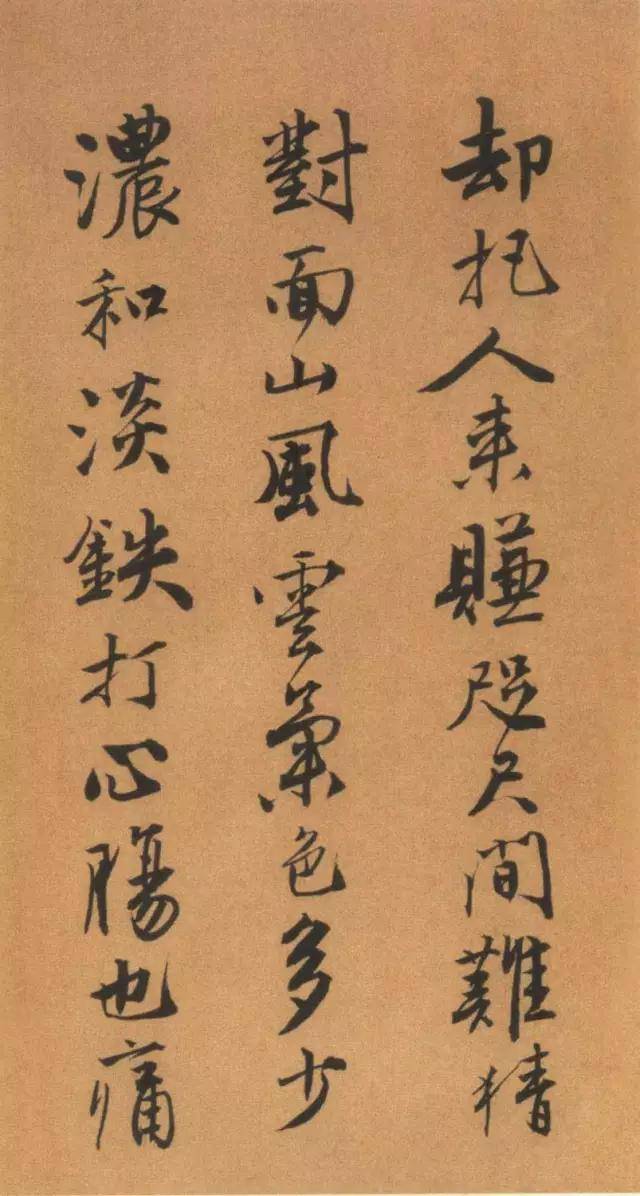 却把人来賺咫尺間難猜
對面山風雲氣色多少
濃和淡鉄打心膓也痛